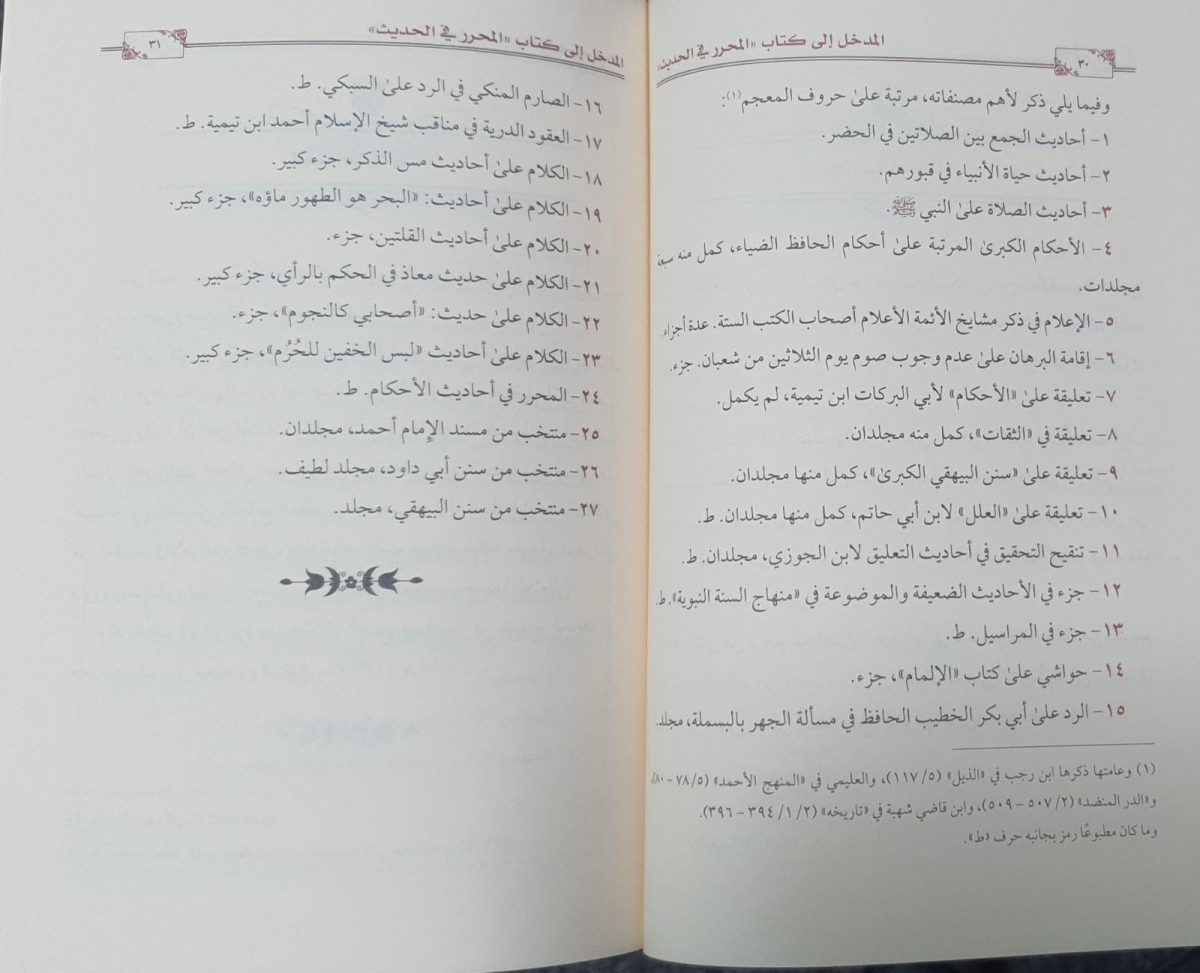 المدخل إلى كتاب «المحرر في الحديث»
٣٠
وفيما يلي ذكر لأهم مصنفاته، مرتبة علىٰ حروف المعجم(١):
١- أحاديث الجمع بين الصلاتين في الحضر.
٢- أحاديث حياة الأنبياء في قبورهم.
٣- أحاديث الصلاة علىٰ النبي ﷺ.
٤- الأحكام الكبرىٰ المرتبة علىٰ أحكام الحافظ الضياء، كمل منه سبعة
مجلدات.
٥- الإعلام في ذكر مشايخ الأئمة الأعلام أصحاب الكتب الستة. عدة أجزاء.
٦- إقامة البرهان علىٰ عدم وجوب صوم يوم الثلاثين من شعبان. جزء.
٧- تعليقة علىٰ «الأحكام» لأبي البركات ابن تيمية، لم يكمل.
٨- تعليقة في «الثقات»، كمل منه مجلدان.
٩- تعليقة علىٰ «سنن البيهقي الكبرىٰ»، كمل منها مجلدان.
١٠- تعليقة علىٰ «العلل» لابن أبي حاتم، كمل منها مجلدان. ط.
١١- تنقيح التحقيق في أحاديث التعليق لابن الجوزي، مجلدان. ط.
١٢- جزء في الأحاديث الضعيفة والموضوعة في «منهاج السنة النبوية». ط.
١٣- جزء في المراسيل. ط.
١٤- حواشي علىٰ كتاب «الإلمام»، جزء.
١٥- الرد علىٰ أبي بكر الخطيب الحافظ في مسألة الجهر بالبسملة، مجلد.
(١) وعامتها ذكرها ابن رجب في «الذيل» (٥/ ١١٧)، والعليمي في «المنهج الأحمد» (٥/ ٧٨ - ٨٠)،
و«الدر المنضد» (٢/ ٥٠٧ - ٥٠٩)، وابن قاضي شهبة في «تاريخه» (٢/ ١/ ٣٩٤ - ٣٩٦).
وما كان مطبوعًا رمز بجانبه حرف «ط».
المدخل إلى كتاب «المحرر في الحديث»
٣١
١٦- الصارم المنكي في الرد علىٰ السبكي. ط.
١٧- العقود الدرية في مناقب شيخ الإسلام أحمد ابن تيمية. ط.
١٨- الكلام علىٰ أحاديث مس الذكر، جزء كبير.
١٩- الكلام علىٰ أحاديث: «البحر هو الطهور ماؤه»، جزء كبير.
٢٠- الكلام علىٰ أحاديث القلتين، جزء.
٢١- الكلام علىٰ حديث معاذ في الحكم بالرأي، جزء كبير.
٢٢- الكلام علىٰ حديث: «أصحابي كالنجوم»، جزء.
٢٣- الكلام علىٰ أحاديث «لبس الخفين للحُرُم»، جزء كبير.
٢٤- المحرر في أحاديث الأحكام. ط.
٢٥- منتخب من مسند الإمام أحمد، مجلدان.
٢٦- منتخب من سنن أبي داود، مجلد لطيف.
٢٧- منتخب من سنن البيهقي، مجلد.